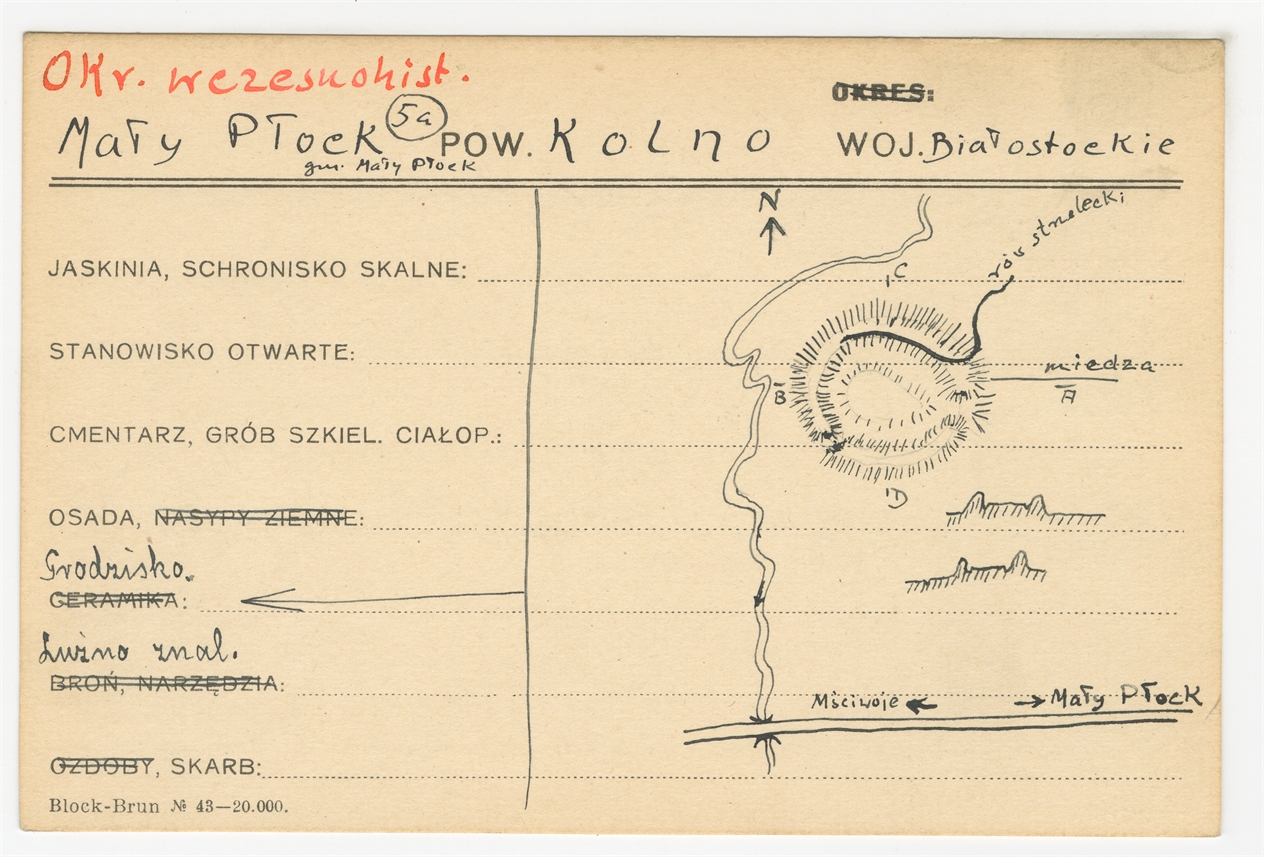 Okr. wczesnohist.
OKRES:
Mały Płock 5a POW. Kolno WOJ. Białostockie
gm. Mały Płock
N
rów strzelecki
JASKINIA, SCHRONISKO SKALNE:
C
STANOWISKO OTWARTE:
miedza
B
A
CMENTARZ, GRÓB SZKIEL. CIAŁOP.:
D
OSADA, NASYPY ZIEMNE:
Grodzisko.
CERAMIKA:
Luźno znal.
BROŃ, NARZĘDZIA:
Mściwoje Mały Płock
OZDOBY, SKARB:
Block-Brun № 43—20.000.